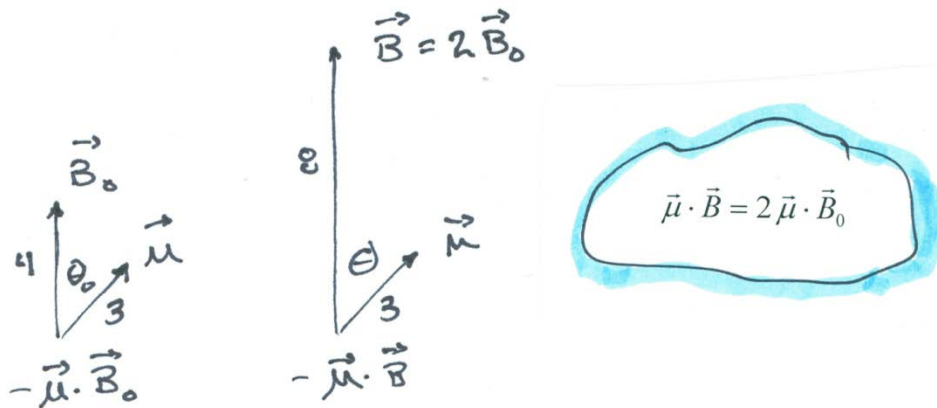 B⃗₀
4
θ₀
μ⃗
3
-μ⃗·B⃗₀
B⃗ = 2B⃗₀
8
θ
μ⃗
3
-μ⃗·B⃗
μ⃗·B⃗ = 2μ⃗·B⃗₀